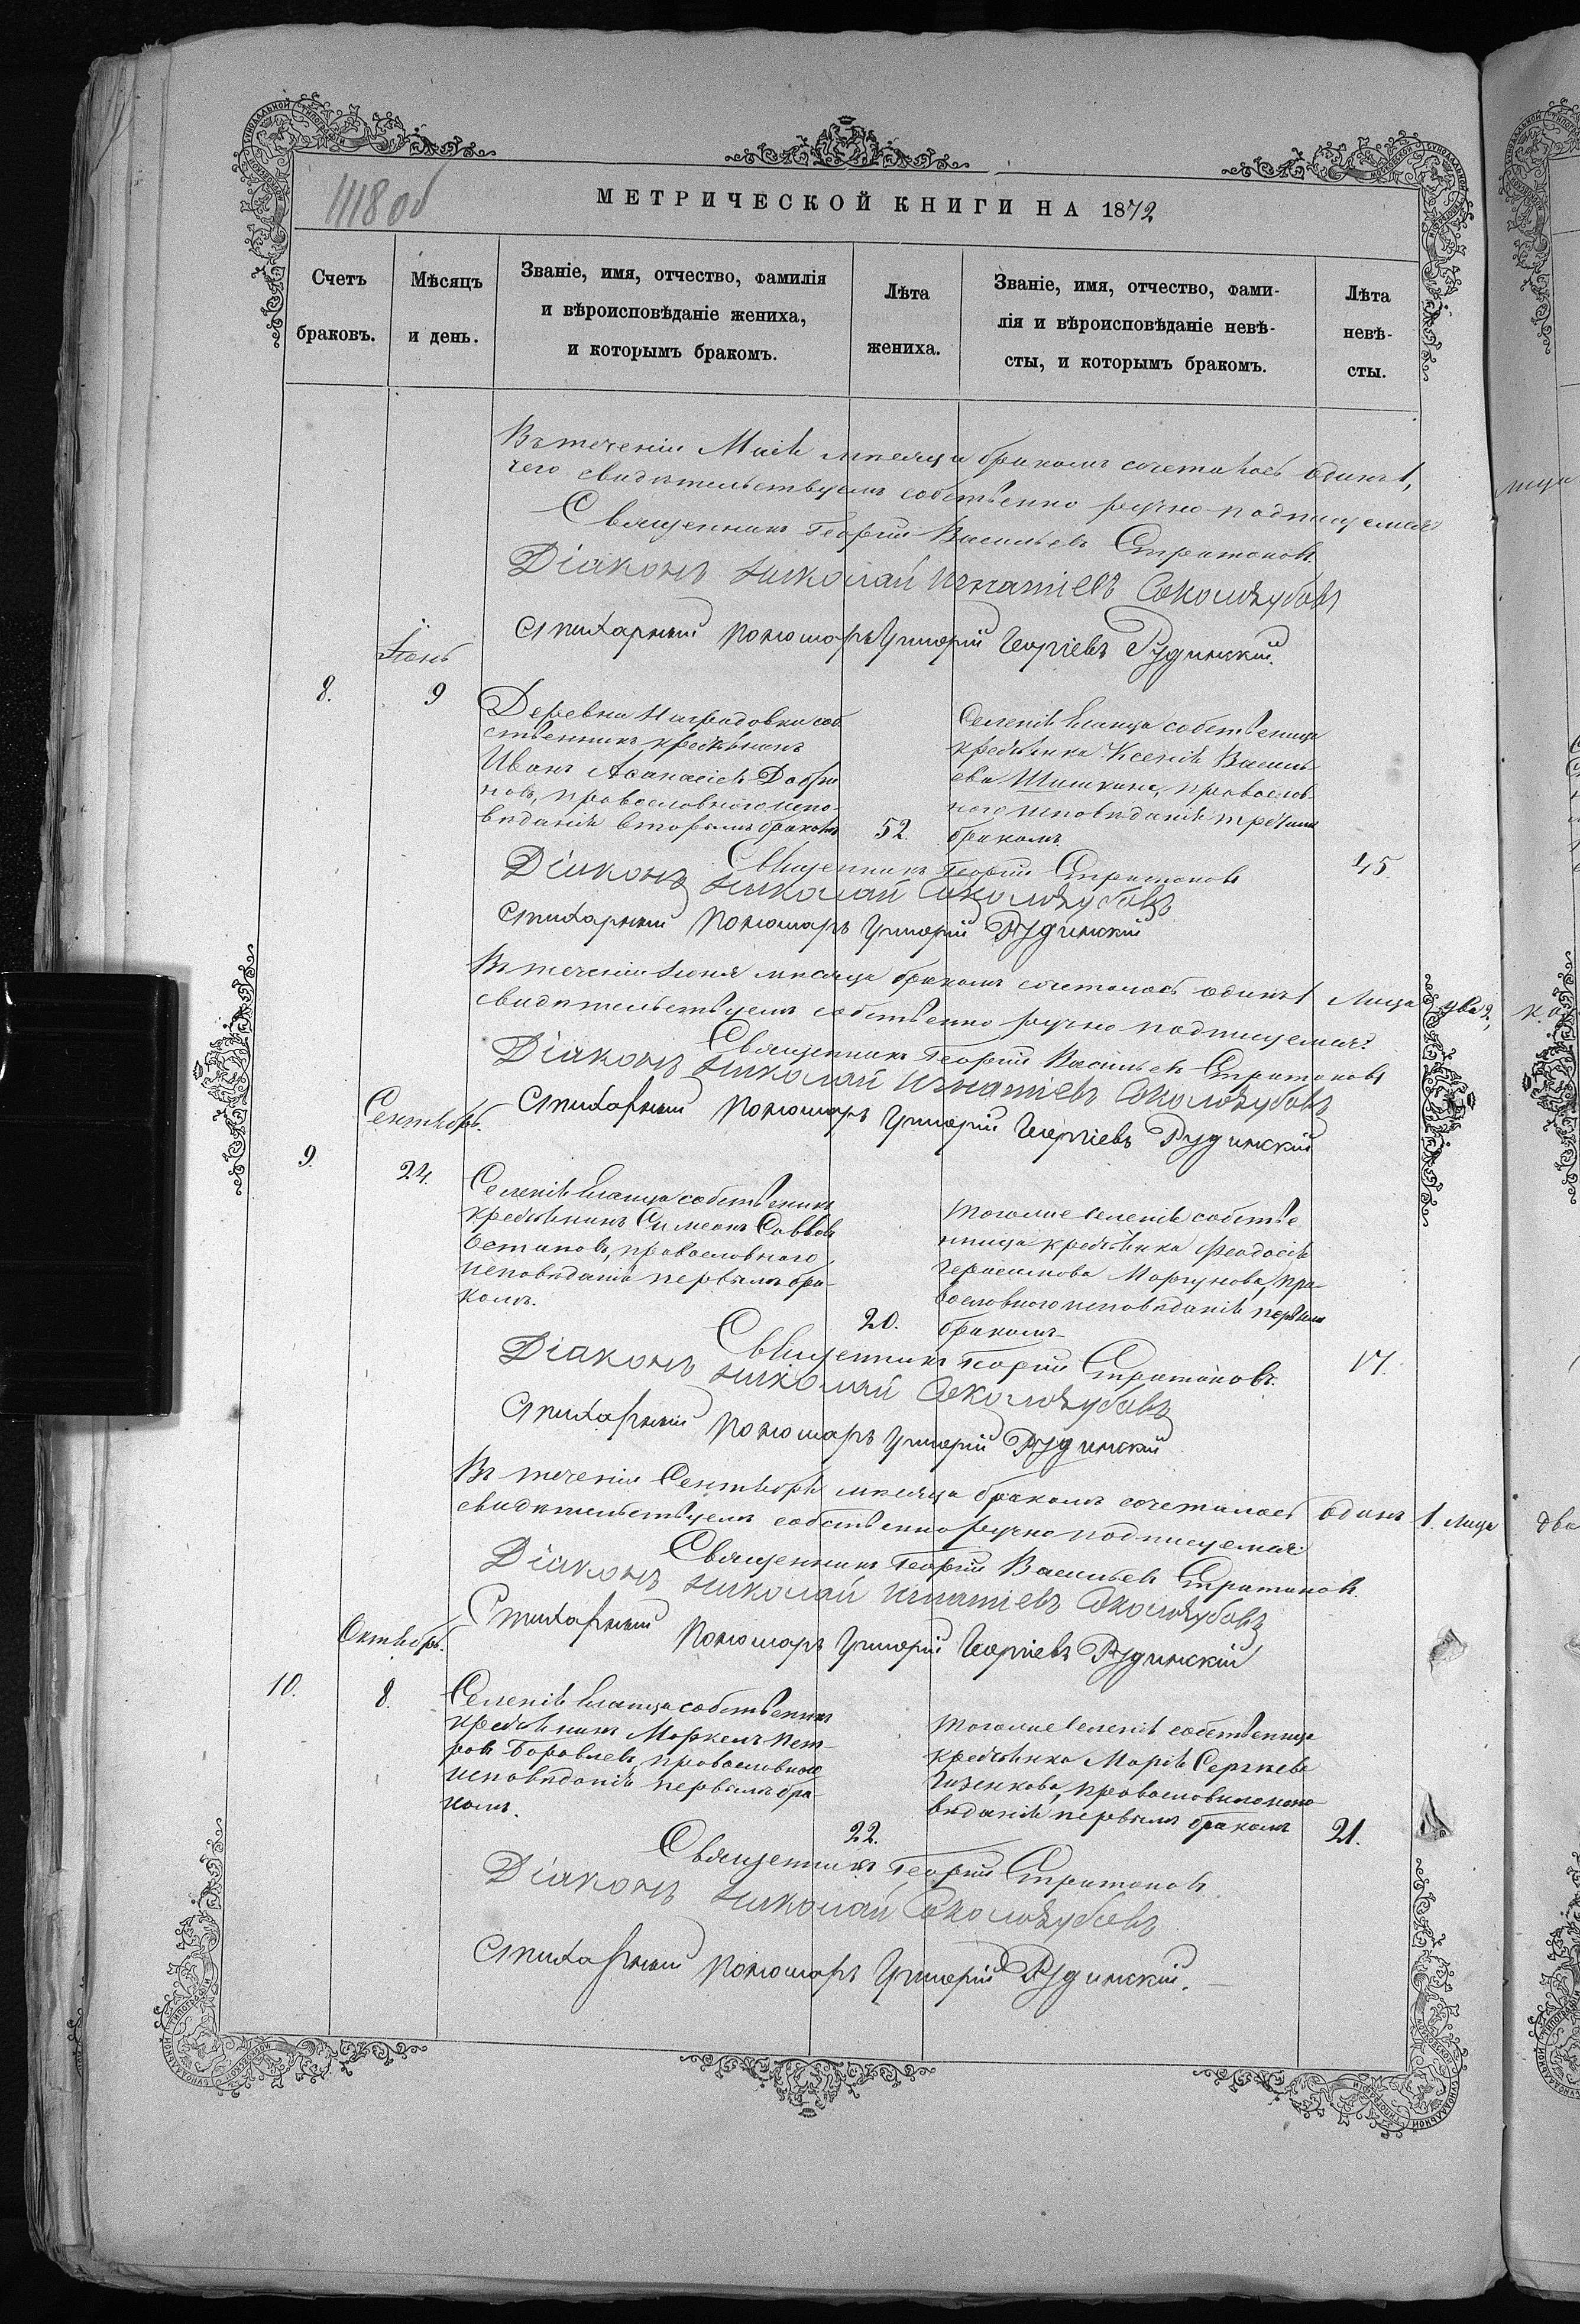 1118 об
МЕТРИЧЕСКОЙ КНИГИ НА 1872
Счетъ браковъ.
Мѣсяцъ и день.
Званіе, имя, отчество, фамилія
и вѣроисповѣданіе жениха,
и которымъ бракомъ.
Лѣта жениха.
Званіе, имя, отчество, фами-
лія и вѣроисповѣданіе невѣ-
сты, и которымъ бракомъ.
Лѣта невѣ-
сты.
Въ теченіи Маія мѣсяца бракомъ сочеталось одинъ 1,
чего свидѣтельствуемъ собственно ручно подписуемся:
Священникъ Георгій Васильевъ Стратоновъ.
Діаконъ Николай Игнатіевъ
Стихарный Пономарь Григорій Георгіевъ Рудинскій.
Іюнь
8.
9
Деревни соб
ственникъ крестьянинъ
Иванъ Аѳанасіевъ
новъ, православного испо-
вѣданія вторымъ бракомъ
52.
Селенія собственица
крестьянка Ксенія Василь
ева Шишкина, православ
ного исповѣданія третьимъ
бракомъ
45.
Священникъ Георгій Стратоновъ
Діаконъ Николай
Стихарный Пономарь Григорій Рудинскій
Въ теченіи Іюня мѣсяца бракомъ сочеталось одинъ 1 Лица два 2,
свидѣтельствуемъ собственно ручно подписуемся:
Священникъ Георгій Васильевъ Стратоновъ
Діаконъ Николай Игнатіевъ
Стихарный Пономарь Григорій Георгіевъ Рудинскій
Сентябрь.
9.
24.
Селенія собственикъ
крестьянинъ Симеонъ Саввовъ
Остаповъ, православного
исповѣданія первымъ бра-
комъ.
20.
Тогоже селенія собстве
нница крестьянка Феодосія
Герасимова Моргунова, пра-
вославного исповѣданія первымъ
бракомъ
17.
Священникъ Георгій Стратоновъ.
Діаконъ Николай
Стихарный Пономарь Григорій Рудинскій
Въ теченіи Сентября мѣсяца бракомъ сочеталось одинъ 1. Лица два
свидѣтельствуемъ собственно ручно подписуемся:
Священникъ Георгій Васильевъ Стратоновъ.
Діаконъ Николай Игнатіевъ
Стихарный Пономарь Григорій Георгіевъ Рудинскій
Октябрь.
10.
8.
Селенія собственикъ
крестьянинъ Маркелъ Пет-
ровъ Боровлевъ, православного
исповѣданія первымъ бра-
комъ.
22.
Тогоже селенія собственица
крестьянка Марія Сергѣева
православного испо
вѣданія первымъ бракомъ
21.
Священникъ Георгій Стратоновъ.
Діаконъ Николай
Стихарный Пономарь Григорій Рудинскій.